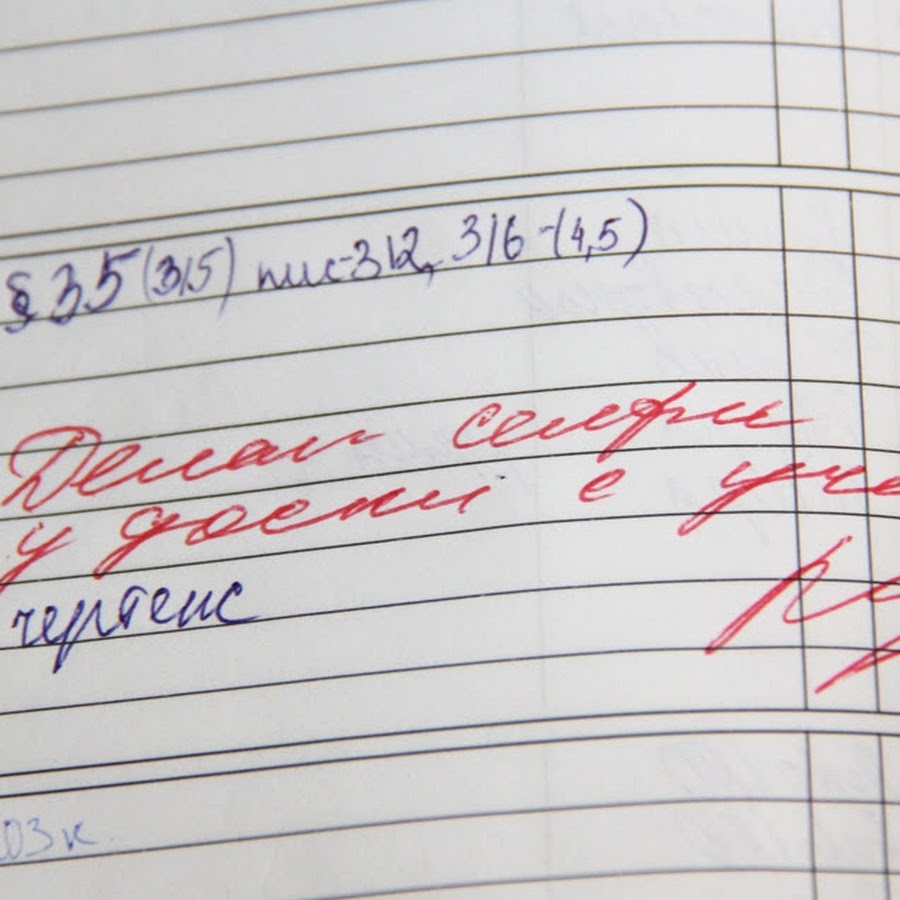 §35 (315) пис-312, 316-(4,5)
Делал селфи
у доски с уче
чертеж
03 к.